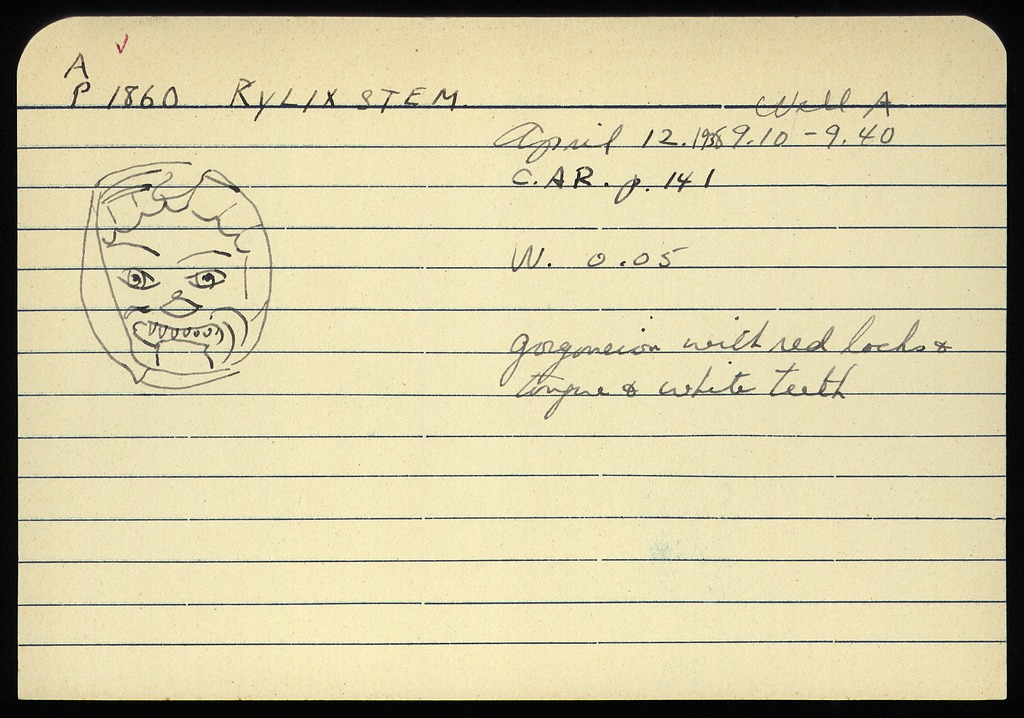 A
P 1860 KYLIX STEM.
Well A
April 12. 1938 9.10 - 9.40
C. AR. p. 141
W. 0.05
gorgoneion with red locks &
tongue & white teeth